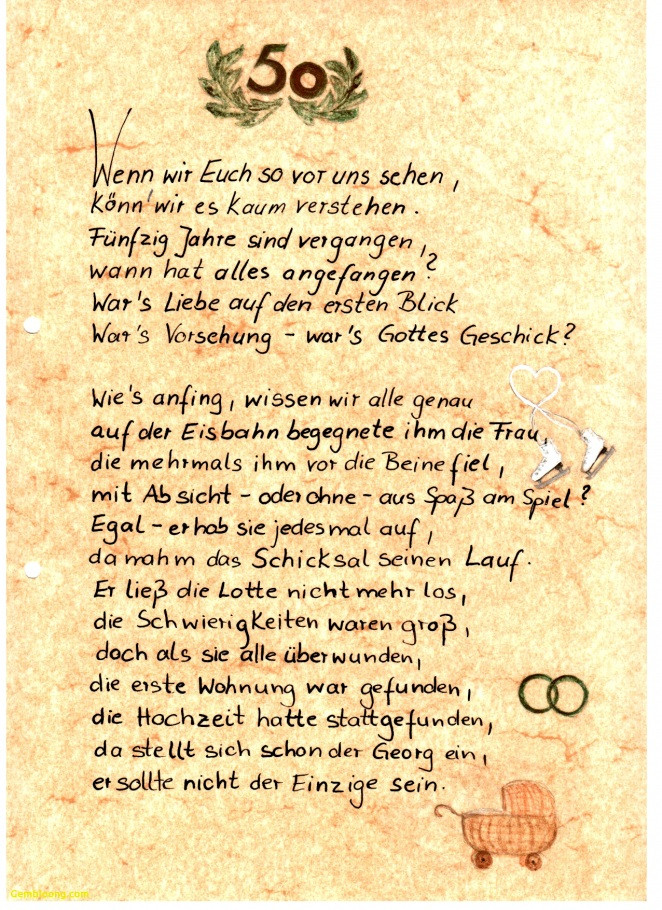 50
Wenn wir Euch so vor uns sehen,
könn' wir es kaum verstehen.
Fünfzig Jahre sind vergangen,
wann hat alles angefangen?
War's Liebe auf den ersten Blick
War's Vorsehung - war's Gottes Geschick?
Wie's anfing, wissen wir alle genau
auf der Eisbahn begegnete ihm die Frau,
die mehrmals ihm vor die Beine fiel,
mit Absicht - oder ohne - aus Spaß am Spiel?
Egal - er hob sie jedesmal auf,
da nahm das Schicksal seinen Lauf.
Er ließ die Lotte nicht mehr los,
die Schwierigkeiten waren groß,
doch als sie alle überwunden,
die erste Wohnung war gefunden,
die Hochzeit hatte stattgefunden,
da stellt sich schon der Georg ein,
er sollte nicht der Einzige sein.
Gembloong.com